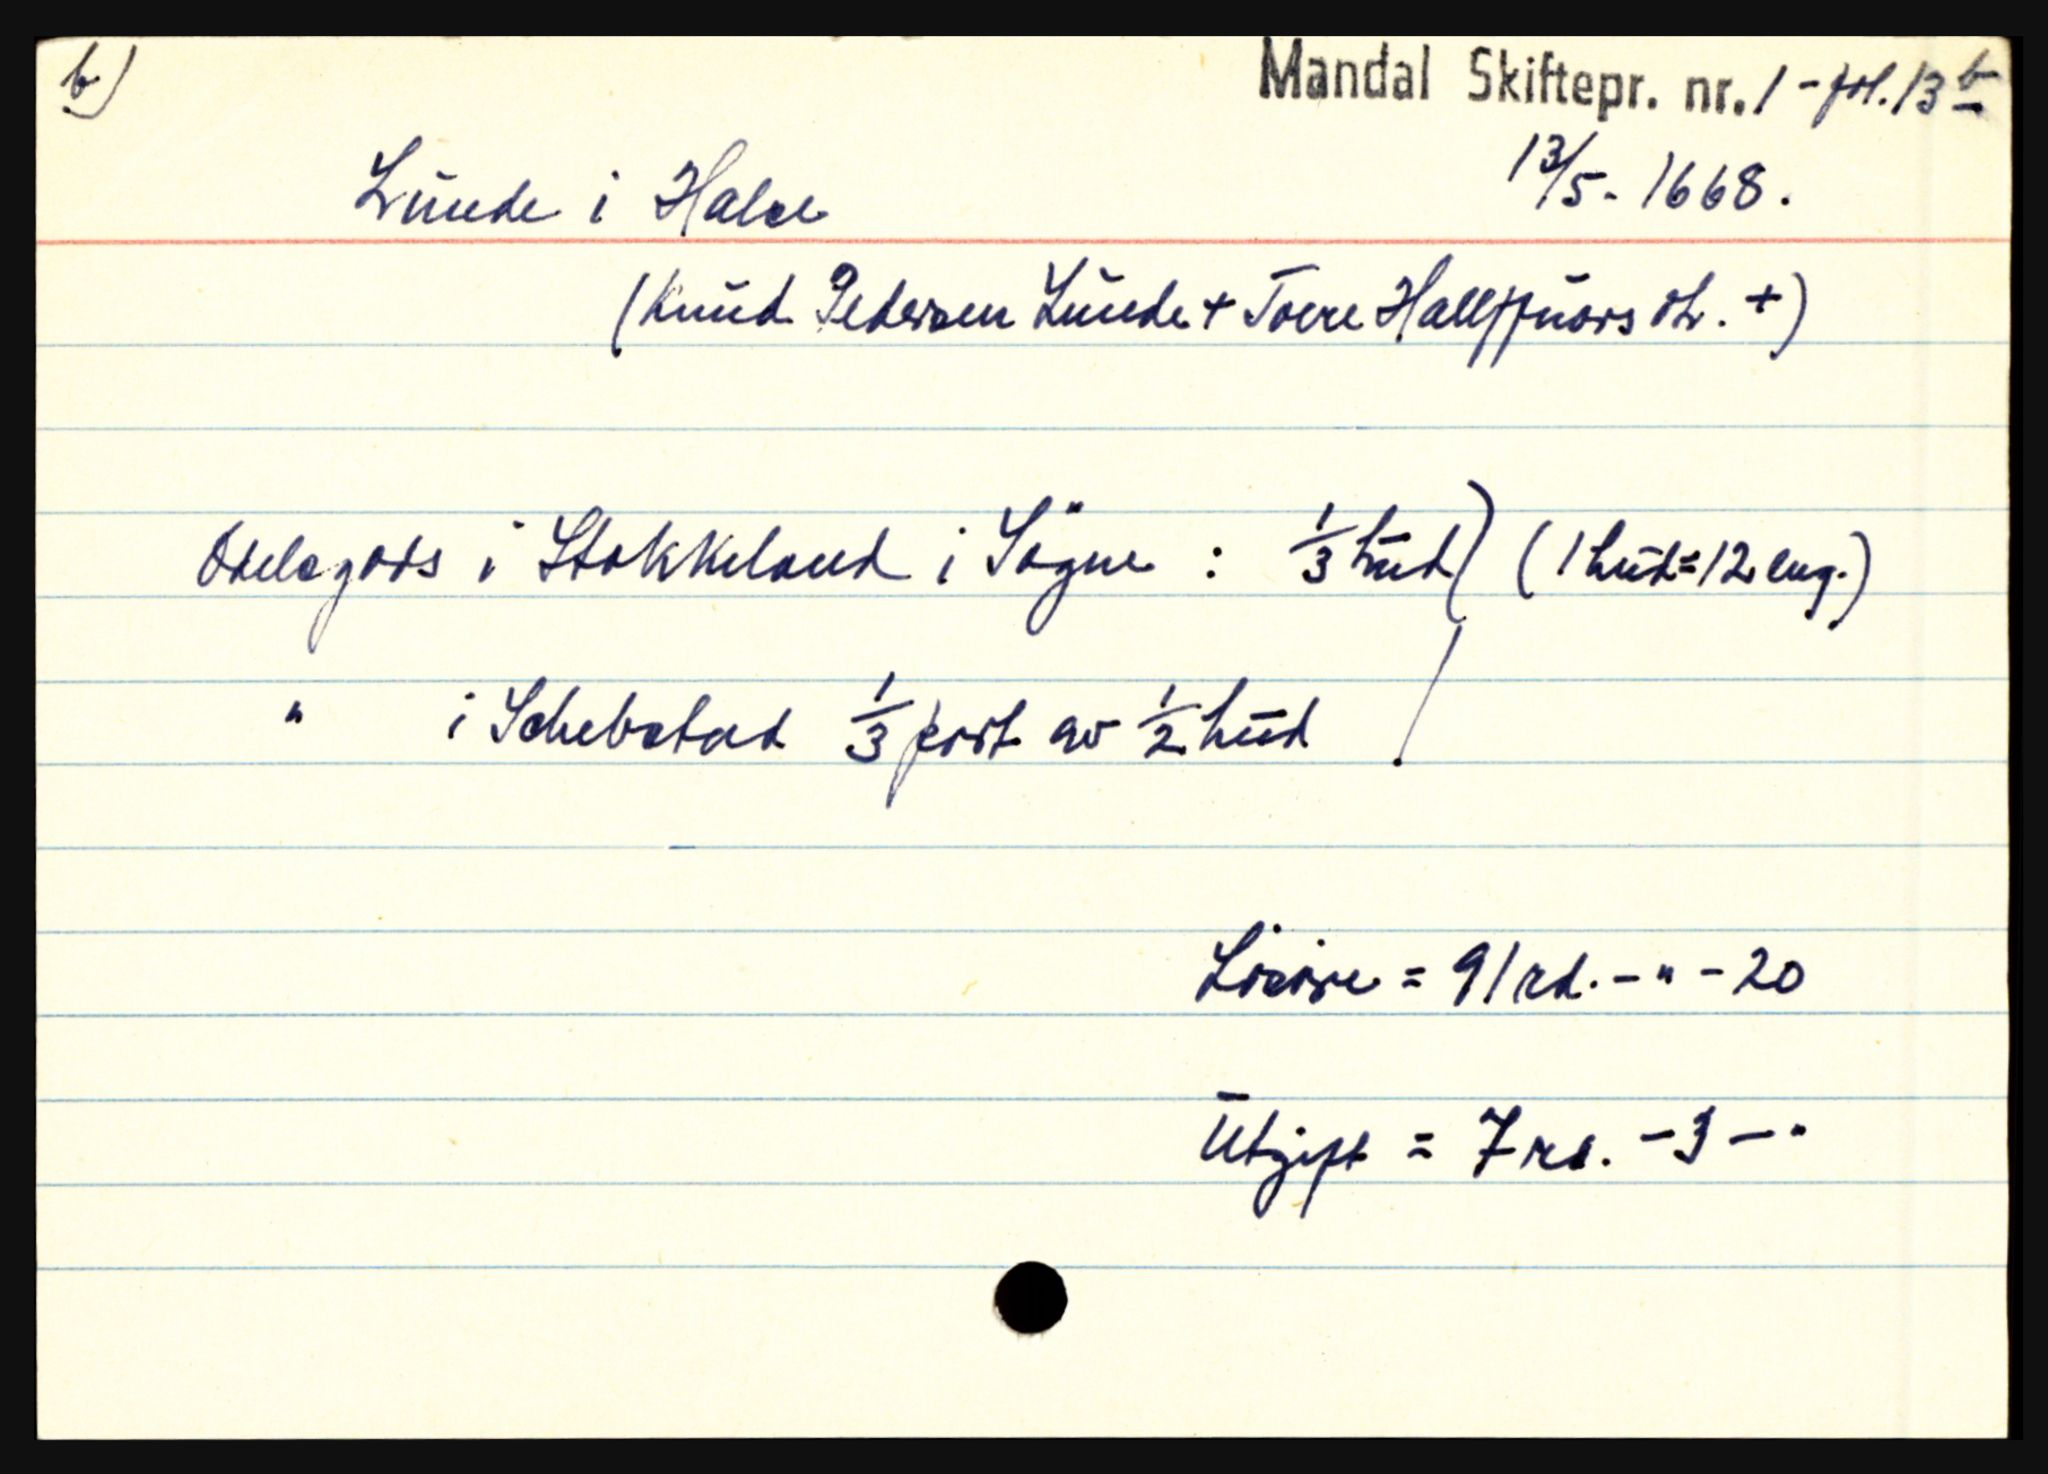 b)
Mandal Skiftepr. nr. 1 - fol. 13 b
13/5 - 1668.
Lunde i Halse
(Knud Pedersen Lunde + Toere Hallffuors dtr. +)
Odelsgods i Stokkeland i Sögne : 1/3 hud) (1 hud = 12 eng.)
" i Schebstad 1/3 part av 1/2 hud /
Lösöre = 91 rd. - " - 20
Utgift = 7 rd. - 3 - "